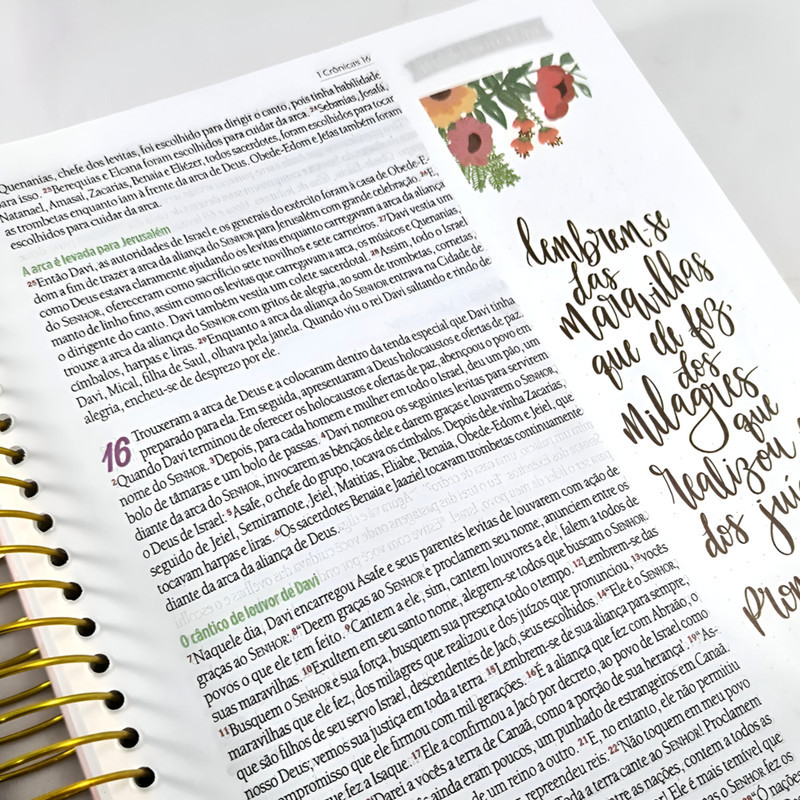 1 Crônicas 16
Quenanias, chefe dos levitas, foi escolhido para dirigir o canto, pois tinha habilidade
para isso. 23Berequias e Elcana foram escolhidos para cuidar da arca. 24Sebanias, Josafá,
Natanael, Amasai, Zacarias, Benaia e Eliézer, todos sacerdotes, foram escolhidos para tocar
as trombetas enquanto iam à frente da arca de Deus. Obede-Edom e Jeías também foram
escolhidos para cuidar da arca.
A arca é levada para Jerusalém
25Então Davi, as autoridades de Israel e os generais do exército foram à casa de Obede-E
dom a fim de trazer a arca da aliança do SENHOR para Jerusalém com grande celebração. 26E,
como Deus estava claramente ajudando os levitas enquanto carregavam a arca da aliança
do SENHOR, ofereceram como sacrifício sete novilhos e sete carneiros. 27Davi vestia um
manto de linho fino, assim como os levitas que carregavam a arca, os músicos e Quenanias,
o dirigente do canto. Davi também vestia um colete sacerdotal. 28Assim, todo o Israel
trouxe a arca da aliança do SENHOR com gritos de alegria, ao som de trombetas, cornetas,
címbalos, harpas e liras. 29Enquanto a arca da aliança do SENHOR entrava na Cidade de
Davi, Mical, filha de Saul, olhava pela janela. Quando viu o rei Davi saltando e rindo de
alegria, encheu-se de desprezo por ele.
16 Trouxeram a arca de Deus e a colocaram dentro da tenda especial que Davi tinha
preparado para ela. Em seguida, apresentaram a Deus holocaustos e ofertas de paz.
2Quando Davi terminou de oferecer os holocaustos e ofertas de paz, abençoou o povo em
nome do SENHOR. 3Depois, para cada homem e mulher em todo o Israel, deu um pão, um
bolo de tâmaras e um bolo de passas. 4Davi nomeou os seguintes levitas para servirem
diante da arca do SENHOR, invocarem as bênçãos dele e darem graças e louvarem o SENHOR,
o Deus de Israel: 5Asafe, o chefe do grupo, tocava os címbalos. Depois dele vinha Zacarias,
seguido de Jeiel, Semiramote, Jeiel, Matitias, Eliabe, Benaia, Obede-Edom e Jeiel, que
tocavam harpas e liras. 6Os sacerdotes Benaia e Jaaziel tocavam trombetas continuamente
diante da arca da aliança de Deus.
O cântico de louvor de Davi
7Naquele dia, Davi encarregou Asafe e seus parentes levitas de louvarem com ação de
graças ao SENHOR: 8“Deem graças ao SENHOR e proclamem seu nome, anunciem entre os
povos o que ele tem feito. 9Cantem a ele, sim, cantem louvores a ele, falem a todos de
suas maravilhas. 10Exultem em seu santo nome, alegrem-se todos que buscam o SENHOR.
11Busquem o SENHOR e sua força, busquem sua presença todo o tempo. 12Lembrem-se das
maravilhas que ele fez, dos milagres que realizou e dos juízos que pronunciou, 13vocês
que são filhos de seu servo Israel, descendentes de Jacó, seus escolhidos. 14“Ele é o SENHOR,
nosso Deus; vemos sua justiça em toda a terra. 15Lembrem-se de sua aliança para sempre,
compromisso que ele firmou com mil gerações. 16É a aliança que fez com Abraão, o
que fez a Isaque. 17Ele a confirmou a Jacó por decreto, ao povo de Israel como
‘Darei a vocês a terra de Canaã, como a porção de sua herança’. 19“As-
ainda eram poucos, um punhado de estrangeiros em Canaã.
de um reino a outro. 21E, no entanto, ele não permitiu
repreendeu reis: 22‘Não toquem em meu povo
Toda a terra cante ao SENHOR! Proclamem
entre as nações, contem a todos as
Ele é mais temível que
o SENHOR fez os
lembrem-se
das
maravilhas
que ele fez,
dos
milagres
que
realizou
dos